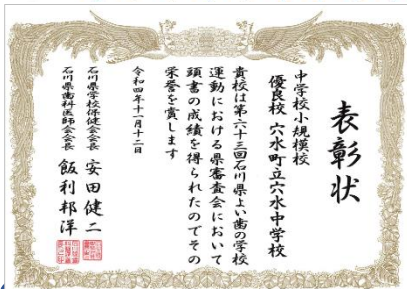 表彰状
中学校小規模校
優良校 穴水町立穴水中学校
貴校は第六十三回石川県よい歯の学校
運動における県審査会において
頭書の成績を得られたのでその
栄誉を賞します
令和四年十一月十二日
石川県学校保健会会長 安田健二
石川県歯科医師会会長 飯利邦洋